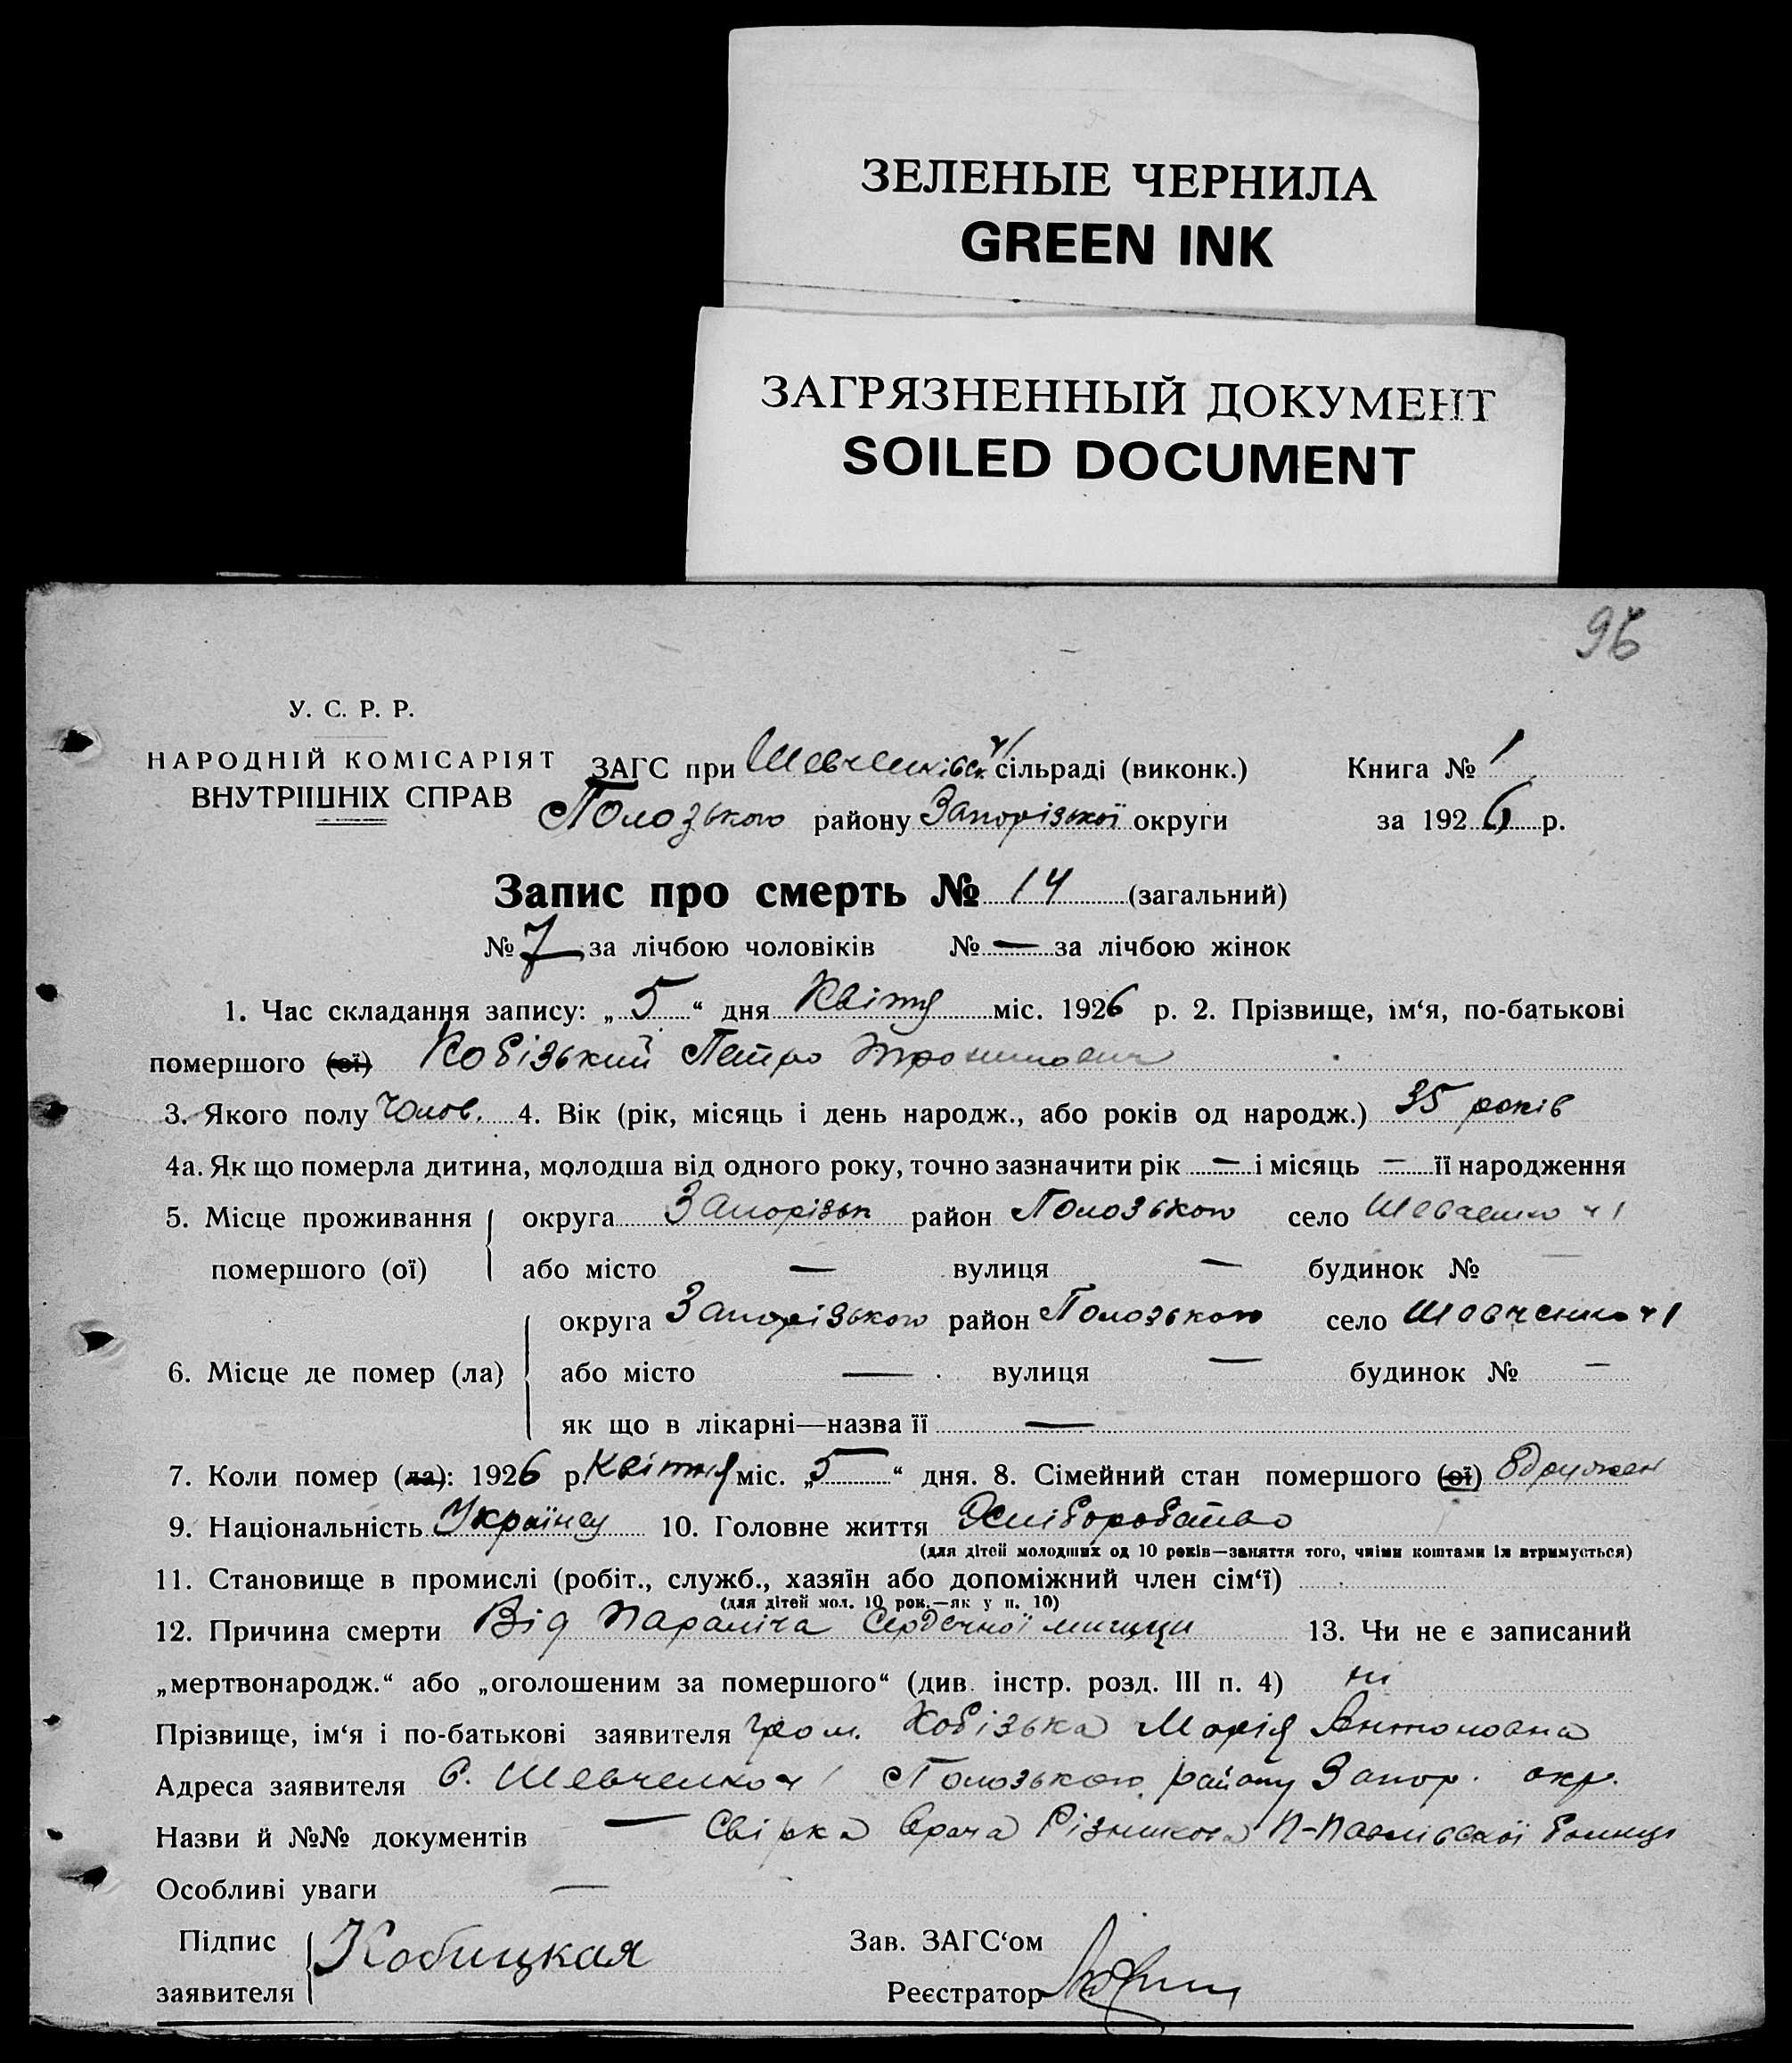 ЗЕЛЕНЫЕ ЧЕРНИЛА
GREEN INK
ЗАГРЯЗНЕННЫЙ ДОКУМЕНТ
SOILED DOCUMENT
96
У. С. Р. Р.
НАРОДНІЙ КОМІСАРІЯТ
ВНУТРІШНІХ СПРАВ
ЗАГС при Шевченківськ ч/1 сільраді (виконк.) Книга № 1
Полозького району Запорізької округи за 1926 р.
Запис про смерть № 14 (загальний)
№ 7 за лічбою чоловіків № — за лічбою жінок
1. Час складання запису: „5“ дня Квітня міс. 1926 р. 2. Прізвище, ім‘я, по-батькові
помершого (ої) Кобізький Петро
3. Якого полу Чолов. 4. Вік (рік, місяць і день народж., або років од народж.) 35 років
4а. Як що померла дитина, молодша від одного року, точно зазначити рік — і місяць — її народження
5. Місце проживання помершого (ої)
округа Запорізьк район Полозького село Шевченко ч 1
або місто — вулиця — будинок № —
6. Місце де помер (ла)
округа Запорізького район Полозького село Шевченко ч 1
або місто — вулиця — будинок № —
як що в лікарні—назва її —
7. Коли помер (ла): 1926 р. Квітня міс. „5“ дня. 8. Сімейний стан помершого (ої) Одружен
9. Національність Українец 10. Головне життя Хліборобство
(для дітей молодших од 10 років—заняття того, чиїми коштами їх втримується)
11. Становище в промислі (робіт., служб., хазяїн або допоміжний член сім‘ї)
(для дітей мол. 10 рок.—як у п. 10)
12. Причина смерти Від Параліча Сердечної мишци 13. Чи не є записаний
„мертвонародж.“ або „оголошеним за помершого“ (див. інстр. розд. III п. 4) ні
Прізвище, ім‘я і по-батькові заявителя гром. Кобізька Марія Антоновна
Адреса заявителя С. Шевченко ч 1 Полозького району Запор. окр.
Назви й №№ документів — врача П-Павлівської
Особливі уваги —
Підпис заявителя Кобицкая
Зав. ЗАГС‘ом
Реєстратор